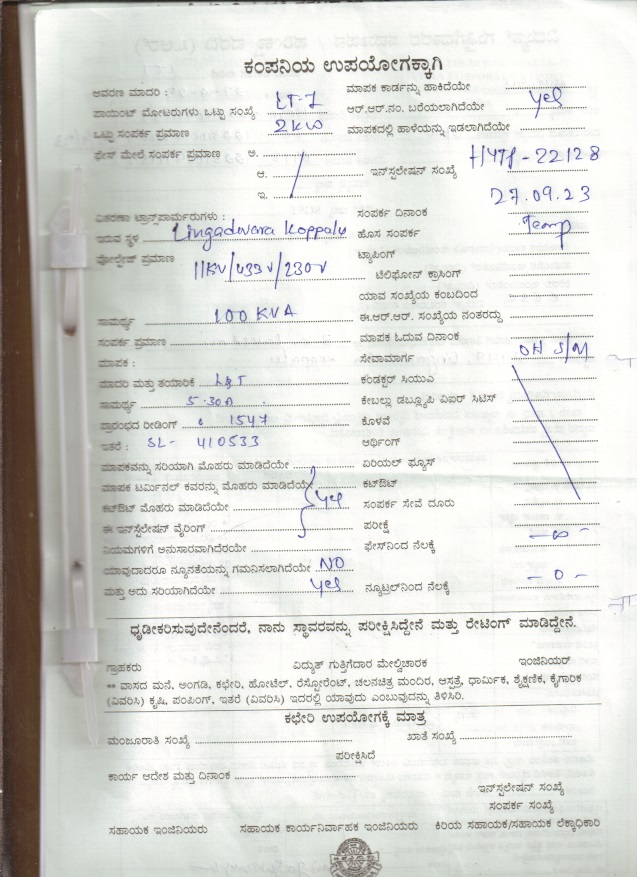 ಕಂಪನಿಯ ಉಪಯೋಗಕ್ಕಾಗಿ
ಆವರಣ ಮಾದರಿ : LT-7 ಮಾಪಕ ಕಾರ್ಡನ್ನು ಹಾಕಿದೆಯೇ
ಪಾಯಿಂಟ್ ಮೋಟರುಗಳು ಒಟ್ಟು ಸಂಖ್ಯೆ ಆರ್.ಆರ್.ನಂ. ಬರೆಯಲಾಗಿದೆಯೇ yes
ಒಟ್ಟು ಸಂಪರ್ಕ ಪ್ರಮಾಣ 2KW ಮಾಪಕದಲ್ಲಿ ಹಾಳೆಯನ್ನು ಇಡಲಾಗಿದೆಯೇ
ಫೇಸ್ ಮೇಲೆ ಸಂಪರ್ಕ ಪ್ರಮಾಣ ಅ.
ಆ. ಇನ್‌ಸ್ಟಲೇಷನ್ ಸಂಖ್ಯೆ -22128
ಇ. 27.09.23
ವಿತರಣಾ ಟ್ರಾನ್ಸ್‌ಪಾರ್ಮರುಗಳು : ಸಂಪರ್ಕ ದಿನಾಂಕ
ಇರುವ ಸ್ಥಳ Lingadvara Koppalu ಹೊಸ ಸಂಪರ್ಕ Temp
ವೋಲ್ಟೇಜ್ ಪ್ರಮಾಣ 11KV/433V/230V ಟ್ಯಾಪಿಂಗ್
ಟೆಲಿಫೋನ್ ಕ್ರಾಸಿಂಗ್
ಯಾವ ಸಂಖ್ಯೆಯ ಕಂಬದಿಂದ
ಸಾಮರ್ಥ್ಯ 100 KVA ಈ.ಆರ್.ಆರ್. ಸಂಖ್ಯೆಯ ನಂತರದ್ದು
ಸಂಪರ್ಕ ಪ್ರಮಾಣ ಮಾಪಕ ಓದುವ ದಿನಾಂಕ
ಮಾಪಕ : ಸೇವಾಮಾರ್ಗ OH S/M
ಮಾದರಿ ಮತ್ತು ತಯಾರಿಕೆ L&T ಕಂಡಕ್ಟರ್ ಸಿಯುಎ
ಸಾಮರ್ಥ್ಯ 5-30A ಕೇಬಲ್ಲು ಡಬ್ಲ್ಯೂಪಿ ವಿಐರ್ ಸಿಟಿಸ್
ಪ್ರಾರಂಭದ ರೀಡಿಂಗ್ 1547 ಕೊಳವೆ
ಇತರೆ : SL- 410533 ಅರ್ಥಿಂಗ್
ಮಾಪಕವನ್ನು ಸರಿಯಾಗಿ ಮೊಹರು ಮಾಡಿದೆಯೇ ಏರಿಯಲ್ ಫ್ಯೂಸ್
ಮಾಪಕ ಟರ್ಮಿನಲ್ ಕವರನ್ನು ಮೊಹರು ಮಾಡಿದೆಯೇ ಕಟ್‌ಔಟ್
ಕಟ್‌ಔಟ್ ಮೊಹರು ಮಾಡಿದೆಯೇ yes ಸಂಪರ್ಕ ಸೇವೆ ದೂರು
ಈ ಇನ್‌ಸ್ಟಲೇಷನ್ ವೈರಿಂಗ್ ಪರೀಕ್ಷೆ
ನಿಯಮಗಳಿಗೆ ಅನುಸಾರವಾಗಿದೆರಯೇ ಫೇಸ್‌ನಿಂದ ನೆಲಕ್ಕೆ -∞-
ಯಾವುದಾದರೂ ನ್ಯೂನತೆಯನ್ನು ಗಮನಿಸಲಾಗಿದೆಯೇ NO
ಮತ್ತು ಅದು ಸರಿಯಾಗಿದೆಯೇ yes ನ್ಯೂಟ್ರಲ್‌ನಿಂದ ನೆಲಕ್ಕೆ -0-
ಧೃಢೀಕರಿಸುವುದೇನೆಂದರೆ, ನಾನು ಸ್ಥಾವರವನ್ನು ಪರೀಕ್ಷಿಸಿದ್ದೇನೆ ಮತ್ತು ರೇಟಿಂಗ್ ಮಾಡಿದ್ದೇನೆ.
ಗ್ರಾಹಕರು ವಿದ್ಯುತ್ ಗುತ್ತಿಗೆದಾರ ಮೇಲ್ವಿಚಾರಕ ಇಂಜಿನಿಯರ್
** ವಾಸದ ಮನೆ, ಅಂಗಡಿ, ಕಛೇರಿ, ಹೋಟೆಲ್, ರೆಸ್ಟೋರೆಂಟ್, ಚಲನಚಿತ್ರ ಮಂದಿರ, ಆಸ್ಪತ್ರೆ, ಧಾರ್ಮಿಕ, ಶೈಕ್ಷಣಿಕ, ಕೈಗಾರಿಕ
(ವಿವರಿಸಿ) ಕೃಷಿ, ಪಂಪಿಂಗ್, ಇತರೆ (ವಿವರಿಸಿ) ಇದರಲ್ಲಿ ಯಾವುದು ಎಂಬುವುದನ್ನು ತಿಳಿಸಿರಿ.
ಕಛೇರಿ ಉಪಯೋಗಕ್ಕೆ ಮಾತ್ರ
ಮಂಜೂರಾತಿ ಸಂಖ್ಯೆ ಖಾತೆ ಸಂಖ್ಯೆ
ಪರೀಕ್ಷಿಸಿದೆ
ಕಾರ್ಯ ಆದೇಶ ಮತ್ತು ದಿನಾಂಕ
ಇನ್‌ಸ್ಟಲೇಷನ್ ಸಂಖ್ಯೆ
ಸಂಪರ್ಕ ಸಂಖ್ಯೆ
ಸಹಾಯಕ ಇಂಜಿನಿಯರು ಸಹಾಯಕ ಕಾರ್ಯನಿರ್ವಾಹಕ ಇಂಜಿನಿಯರು ಕಿರಿಯ ಸಹಾಯಕ/ಸಹಾಯಕ ಲೆಕ್ಕಾಧಿಕಾರಿ